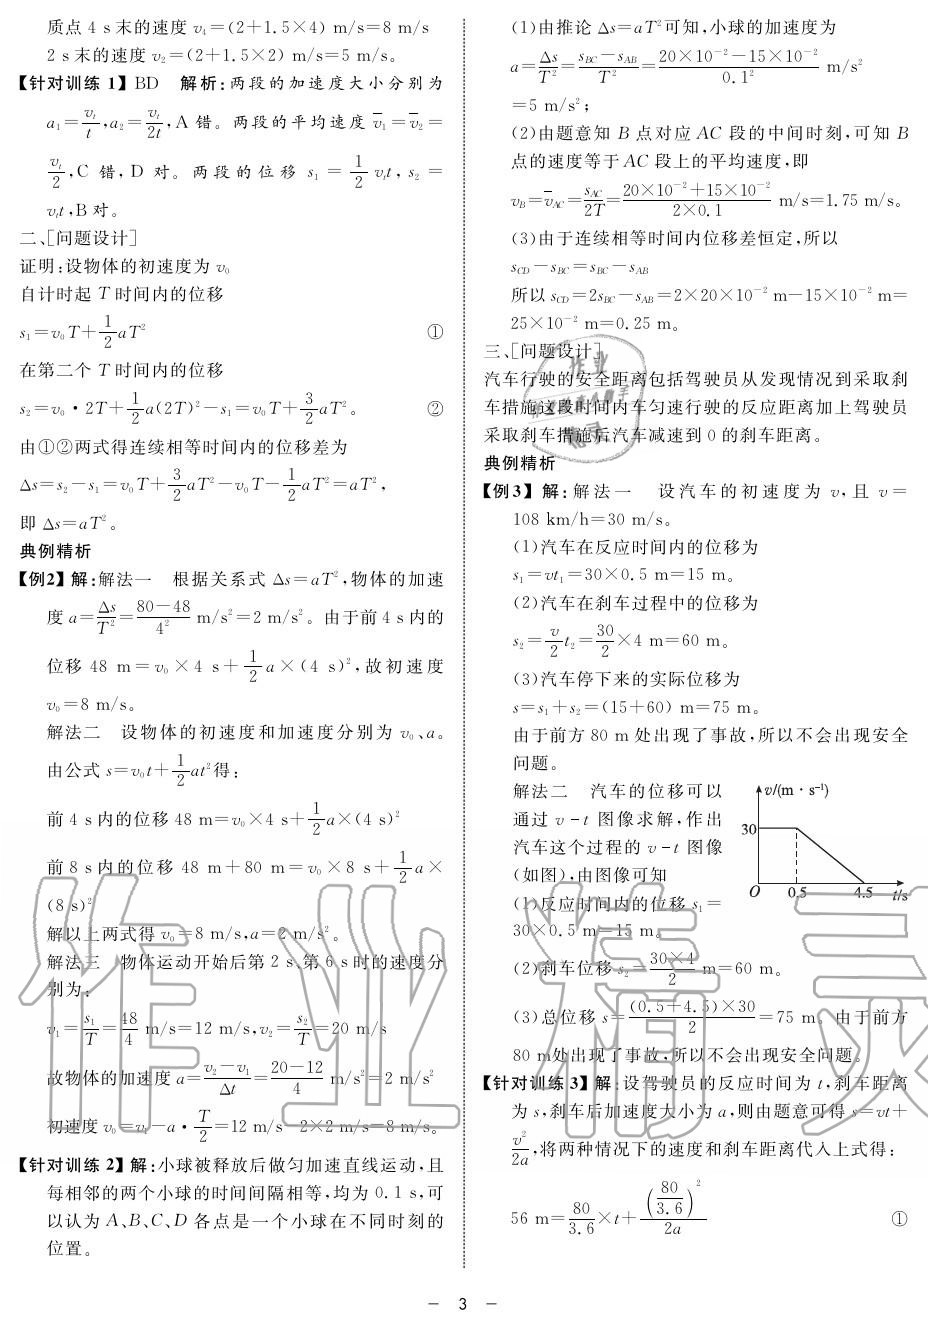 质点 4 s 末的速度 v₄=(2+1.5×4) m/s=8 m/s
2 s 末的速度 v₂=(2+1.5×2) m/s=5 m/s。
【针对训练 1】BD 解析:两段的加速度大小分别为
a₁=vₜ/t,a₂=vₜ/2t,A 错。两段的平均速度 v̄₁=v̄₂=
vₜ/2,C 错,D 对。两段的位移 s₁=1/2 vₜt,s₂=
vₜt,B 对。
二、[问题设计]
证明:设物体的初速度为 v₀
自计时起 T 时间内的位移
s₁=v₀T+1/2 aT² ①
在第二个 T 时间内的位移
s₂=v₀·2T+1/2 a(2T)²-s₁=v₀T+3/2 aT²。 ②
由①②两式得连续相等时间内的位移差为
Δs=s₂-s₁=v₀T+3/2 aT²-v₀T-1/2 aT²=aT²,
即 Δs=aT²。
典例精析
【例2】解:解法一 根据关系式 Δs=aT²,物体的加速
度 a=Δs/T²=(80-48)/4² m/s²=2 m/s²。由于前 4 s 内的
位移 48 m=v₀×4 s+1/2 a×(4 s)²,故初速度
v₀=8 m/s。
解法二 设物体的初速度和加速度分别为 v₀、a。
由公式 s=v₀t+1/2 at²得:
前 4 s 内的位移 48 m=v₀×4 s+1/2 a×(4 s)²
前 8 s 内的位移 48 m+80 m=v₀×8 s+1/2 a×
(8 s)²
解以上两式得 v₀=8 m/s,a=2 m/s²。
解法三 物体运动开始后第 2 s、第 6 s 时的速度分
别为:
v₁=s₁/T=48/4 m/s=12 m/s,v₂=s₂/T=20 m/s
故物体的加速度 a=(v₂-v₁)/Δt=(20-12)/4 m/s²=2 m/s²
初速度 v₀=v₁-a·T/2=12 m/s-2×2 m/s=8 m/s。
【针对训练 2】解:小球被释放后做匀加速直线运动,且
每相邻的两个小球的时间间隔相等,均为 0.1 s,可
以认为 A、B、C、D 各点是一个小球在不同时刻的
位置。
(1)由推论 Δs=aT²可知,小球的加速度为
a=Δs/T²=(s_BC-s_AB)/T²=(20×10⁻²-15×10⁻²)/0.1² m/s²
=5 m/s²;
(2)由题意知 B 点对应 AC 段的中间时刻,可知 B
点的速度等于 AC 段上的平均速度,即
v_B=v̄_AC=s_AC/2T=(20×10⁻²+15×10⁻²)/(2×0.1) m/s=1.75 m/s。
(3)由于连续相等时间内位移差恒定,所以
s_CD-s_BC=s_BC-s_AB
所以 s_CD=2s_BC-s_AB=2×20×10⁻² m-15×10⁻² m=
25×10⁻² m=0.25 m。
三、[问题设计]
汽车行驶的安全距离包括驾驶员从发现情况到采取刹
车措施这段时间内车匀速行驶的反应距离加上驾驶员
采取刹车措施后汽车减速到 0 的刹车距离。
典例精析
【例3】解:解法一 设汽车的初速度为 v,且 v=
108 km/h=30 m/s。
(1)汽车在反应时间内的位移为
s₁=vt₁=30×0.5 m=15 m。
(2)汽车在刹车过程中的位移为
s₂=v/2 t₂=30/2×4 m=60 m。
(3)汽车停下来的实际位移为
s=s₁+s₂=(15+60) m=75 m。
由于前方 80 m 处出现了事故,所以不会出现安全
问题。
解法二 汽车的位移可以
通过 v-t 图像求解,作出
汽车这个过程的 v-t 图像
(如图),由图像可知
v/(m·s⁻¹)
30
O 0.5 4.5 t/s
(1)反应时间内的位移 s₁=
30×0.5 m=15 m。
(2)刹车位移 s₂=(30×4)/2 m=60 m。
(3)总位移 s=((0.5+4.5)×30)/2=75 m。由于前方
80 m处出现了事故,所以不会出现安全问题。
【针对训练 3】解:设驾驶员的反应时间为 t,刹车距离
为 s,刹车后加速度大小为 a,则由题意可得 s=vt+
v²/2a,将两种情况下的速度和刹车距离代入上式得:
56 m=80/3.6×t+(80/3.6)²/2a ①
- 3 -
作业精灵